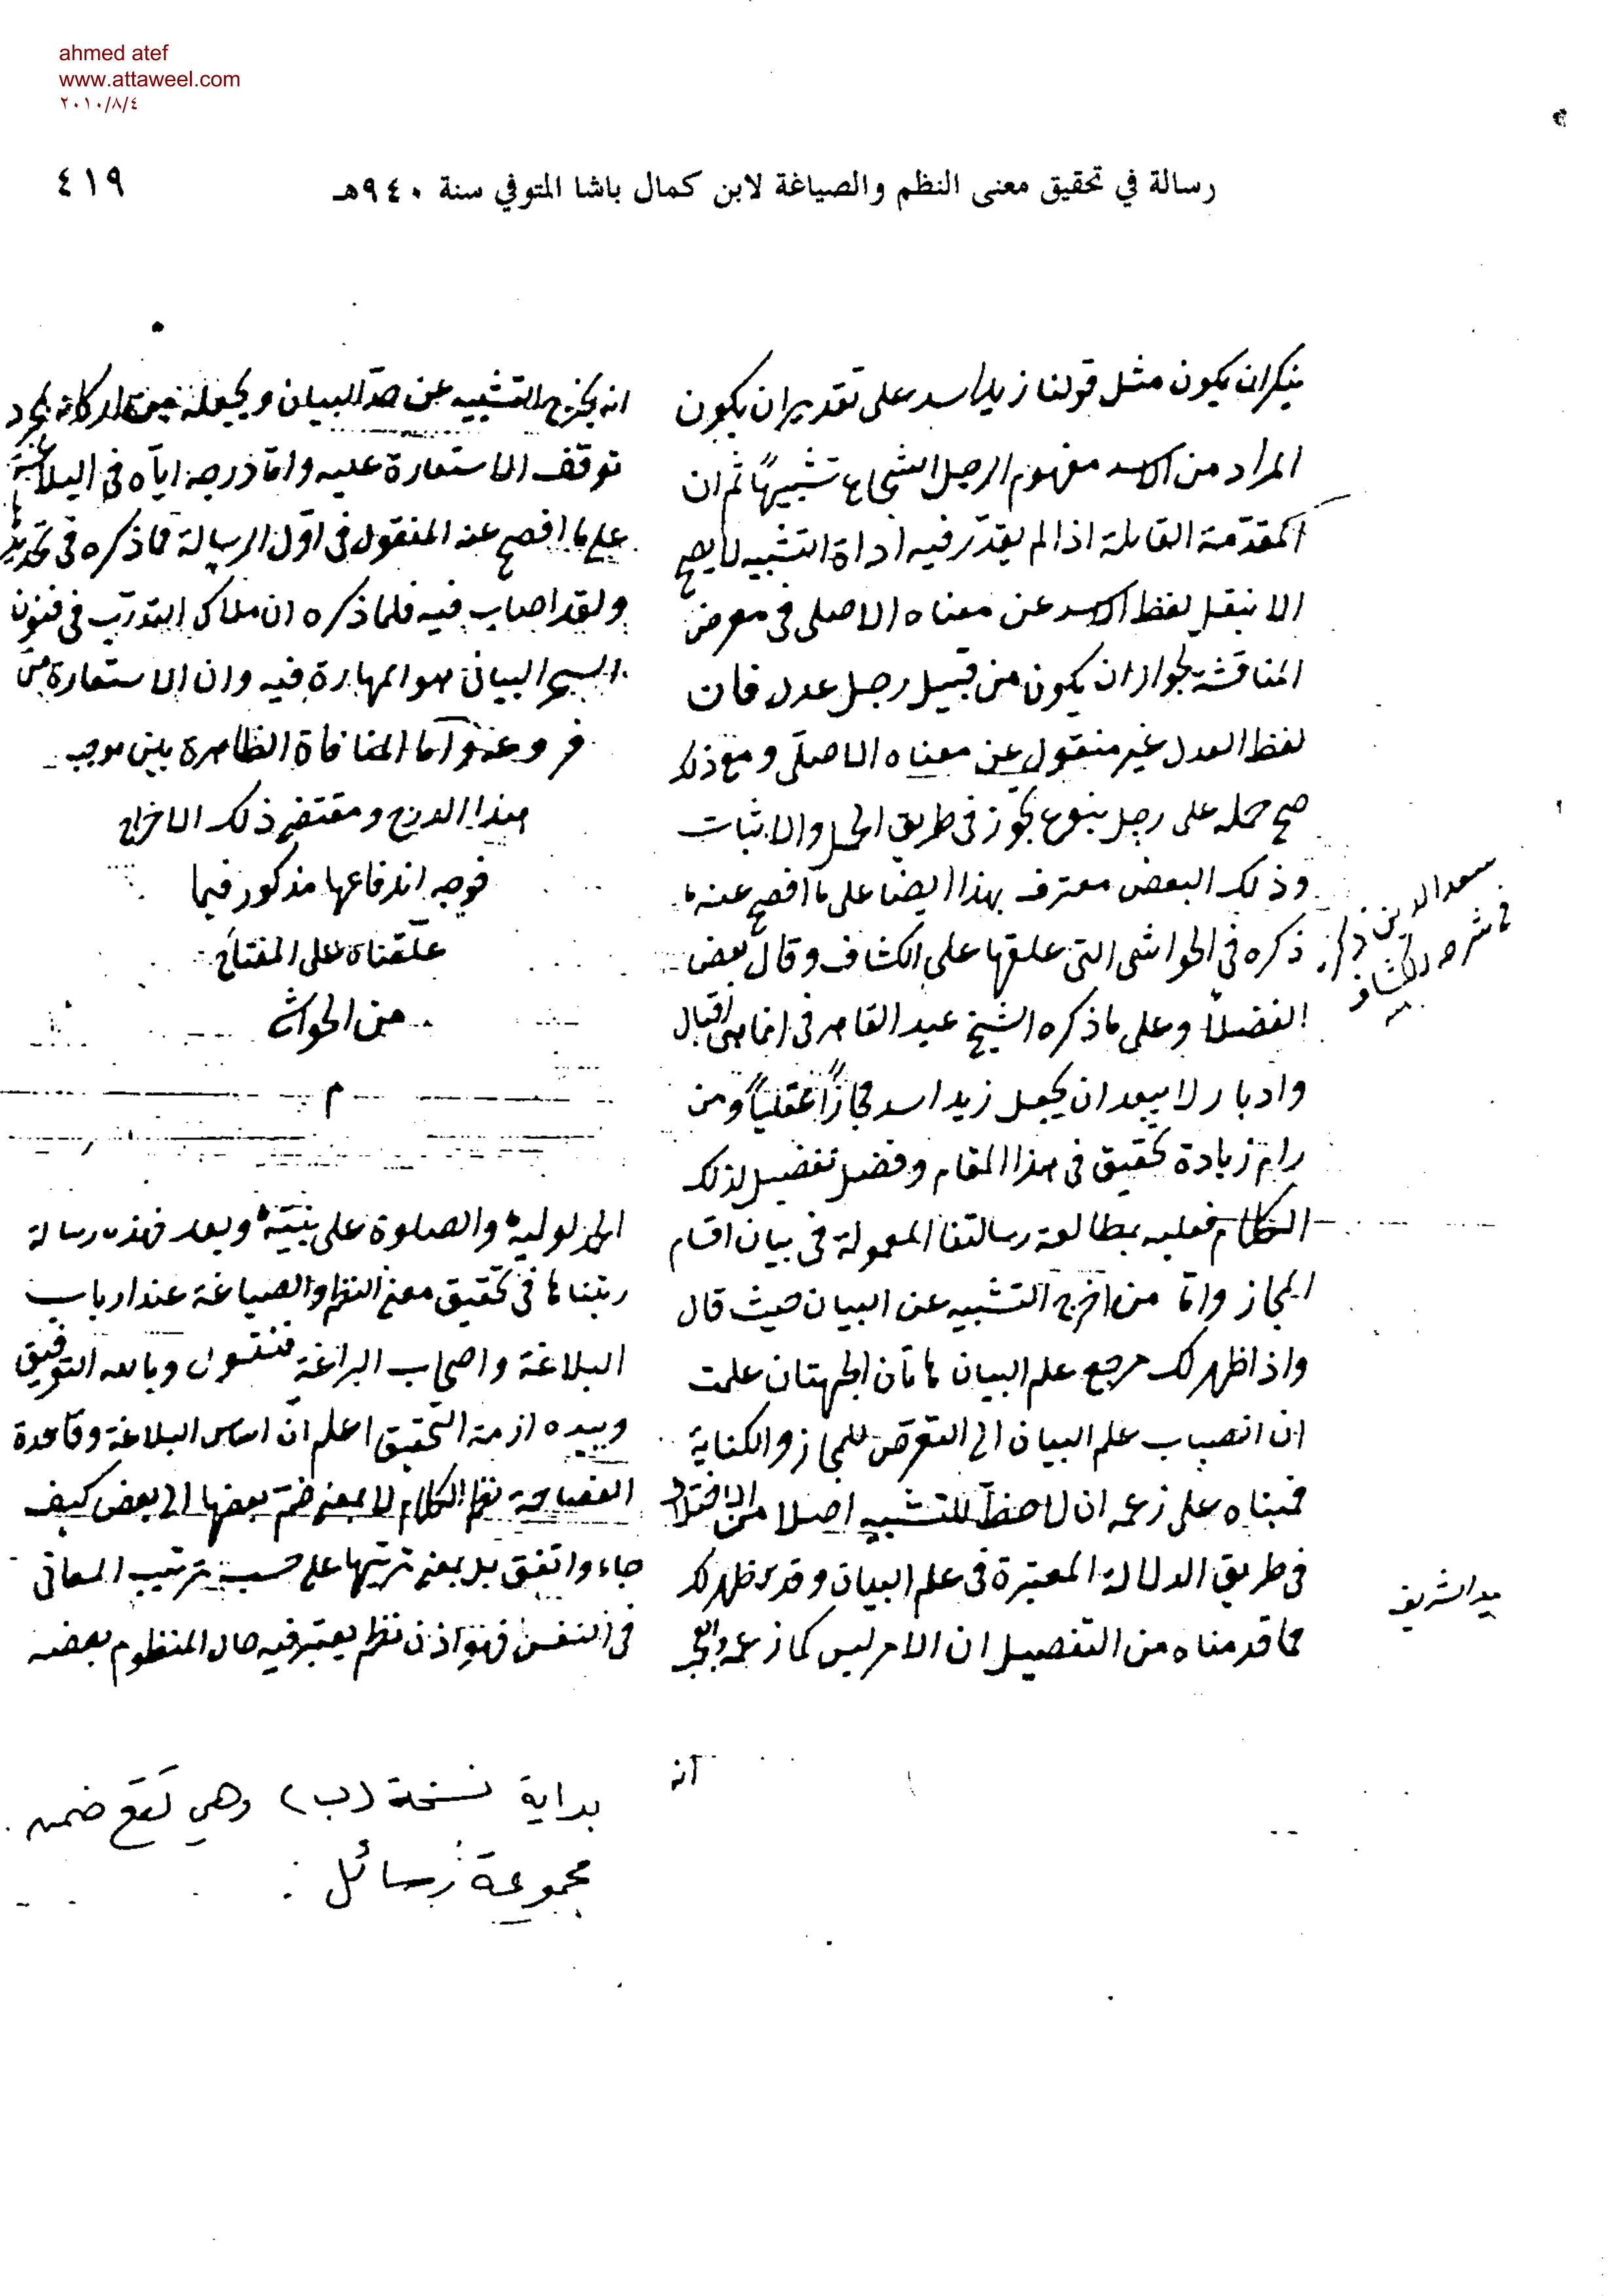 ahmed atef
www.attaweel.com
٢٠١٠/٨/٤
رسالة في تحقيق معنى النظم والصياغة لابن كمال باشا المتوفي سنة ٩٤٠هـ
٤١٩
ينكر ان يكون مثل قولنا زيد اسد على تقدير ان يكون
المراد من الاسد مفهوم الرجل الشجاع تشبيهًا ثم ان
المقدّمة القايلة اذا لم يقدّر فيه اداة التشبيه لا يصح
الا بنقل لفظ الاسد عن معناه الاصلى فى معرض
المناقشة لجواز ان يكون من قبيل رجل عدل فان
لفظ العدل غير منقول عن معناه الاصلى ومع ذلك
صح حمله على رجل بنوع تجوّز فى طريق الحمل والاثبات
وذلك البعض معترف بهذا ايضا على ما افصح عنه ما
ذكره فى الحواشى التى علقها على الكشاف وقال بعض
الفضلا وعلى ما ذكره الشيخ عبد القاهر فى انما هى اقبال
وادبار لا يبعد ان يجعل زيد اسد مجازًا عقليًا ومن
رام زيادة تحقيق فى هذا المقام وفضل تفصيل لذلك
الكلام فعليه بمطالعة رسالتنا المعمولة فى بيان اقسام
المجاز وامّا من اخرج التشبيه عن البيان حيث قال
واذا ظهر لك مرجع علم البيان هاتان الجهتان علمت
ان انصباب علم البيان الى التعرّض للمجاز والكناية
فمبناه على زعمه ان لا حظّ للتشبيه اصلا من الاختلاف
فى طريق الدلالة المعتبرة فى علم البيان وقد ظهر لك
مما قدمناه من التفصيل ان الامر ليس كما زعمه والعجب
انه
سعد الدين ذكره
فى شرح الكشاف
سيد الشريف
انه يخرج التشبيه عن حدّ البيان ويجعله من اركانه لمجرد
توقف الاستعارة عليه وامّا درجه ايّاه فى البلاغة
على ما افصح عنه المنقول فى اوّل الرسالة مما ذكره فى تحديد
ولقد اصاب فيه فلما ذكره ان ملاك التدرّب فى فنون
السحر البيانى هو المهارة فيه وان الاستعارة من
فروعه واما المنافاة الظاهرة بين موجب
هذا الدرج ومقتضى ذلك الاخراج
فوجه اندفاعها مذكور فيما
علّقناه على المفتاح
من الحواشى
م
الحمد لوليه والصلوة على نبيّه وبعد فهذه رسالة
رتبناها فى تحقيق معنى النظم والصياغة عند ارباب
البلاغة واصحاب البراعة فنقول وبالله التوفيق
وبيده ازمة التحقيق اعلم انّ اساس البلاغة وقاعدة
الفصاحة نظم الكلام لا بمعنى ضمّ بعضها الى بعض كيف
جاء واتفق بل بمعنى ترتيبها على حسب ترتيب المعانى
فى النفس فهو اذن نظم يعتبر فيه حال المنظوم بعضه
بداية نسخة (ب) وهي تقع ضمن
مجموعة رسائل .